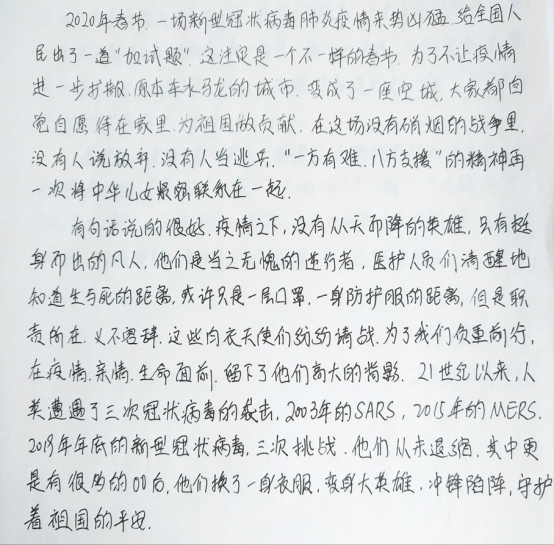 2020年春节.一场新型冠状病毒肺炎疫情来势凶猛.给全国人
民出了一道“加试题”.这注定是一个不一样的春节.为了不让疫情
进一步扩散.原本车水马龙的城市.变成了一座空城.大家都自
觉自愿待在家里.为祖国做贡献.在这场没有硝烟的战争里.
没有人说放弃.没有人当逃兵.“一方有难.八方支援”的精神再
一次将中华儿女紧紧联系在一起.
有句话说的很好.疫情之下,没有从天而降的英雄.只有挺
身而出的凡人,他们是当之无愧的逆行者.医护人员们清醒地
知道生与死的距离,或许只是一层口罩.一身防护服的距离,但是职
责所在.义不容辞.这些白衣天使们纷纷请战.为了我们负重前行,
在疫情.亲情.生命面前.留下了他们高大的背影.21世纪以来,人
类遭遇了三次冠状病毒的袭击.2003年的SARS,2015年的MERS.
2019年年底的新型冠状病毒,三次挑战.他们从未退缩.其中更
是有很多的00后,他们换了一身衣服,变身大英雄.冲锋陷阵,守护
着祖国的平安.